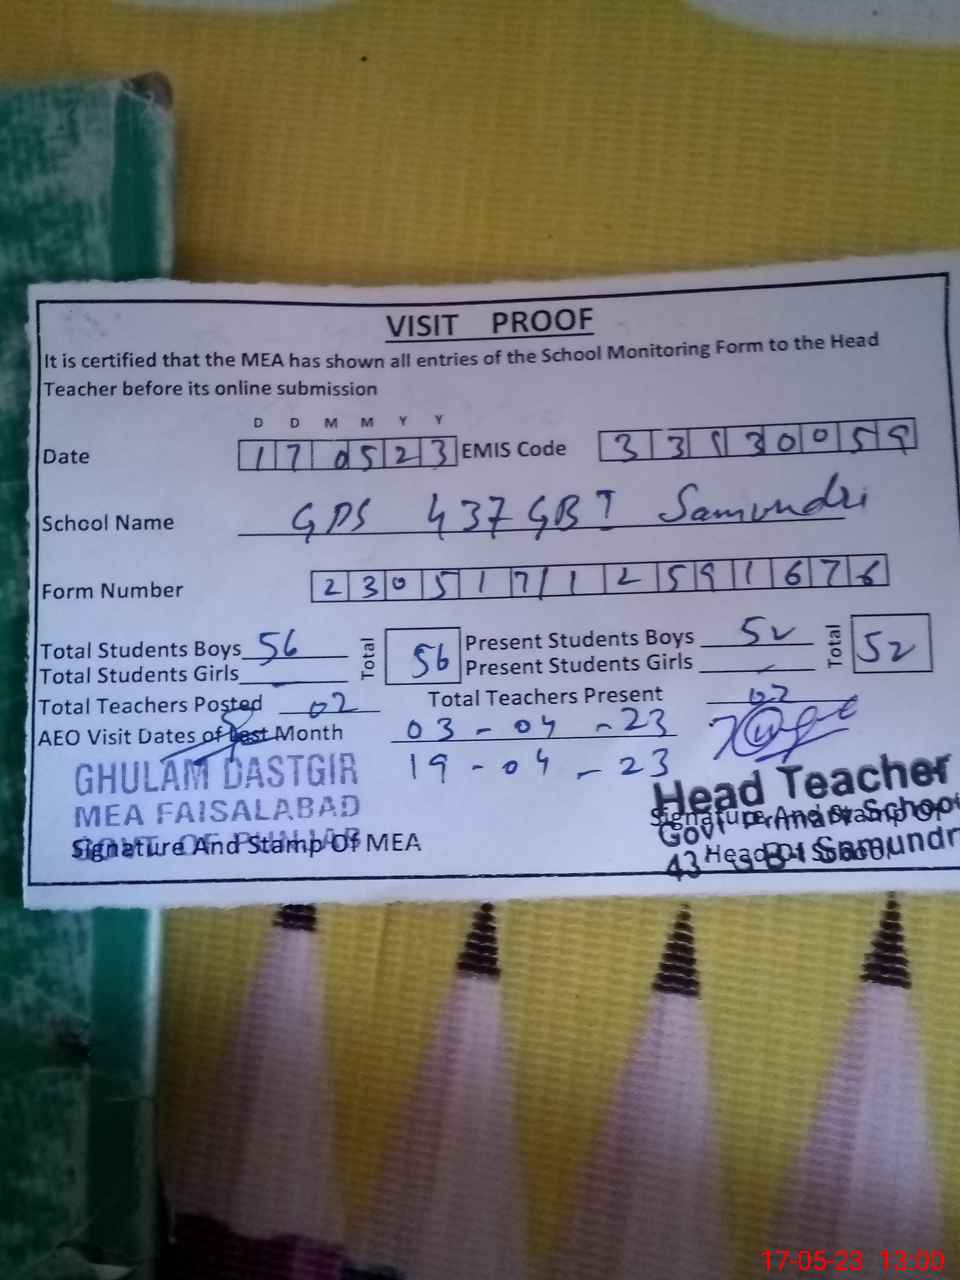 VISIT PROOF
It is certified that the MEA has shown all entries of the School Monitoring Form to the Head
Teacher before its online submission
D D M M Y Y
Date 170523 EMIS Code 33130059
School Name GPS 437 GB I Samundri
Form Number 23051711259 1676
Total Students Boys 56 Total 56 Present Students Boys 52 Total 52
Total Students Girls Present Students Girls
Total Teachers Posted 02 Total Teachers Present 02
AEO Visit Dates of Last Month 03-04-23
19-04-23
GHULAM DASTGIR
MEA FAISALABAD
GOVT OF PUNJAB
Signature And Stamp Of MEA
Head Teacher
Govt Primary School
Signature And Stamp Of
Head Of School
43 GB-I Samundr
17-05-23 13:00